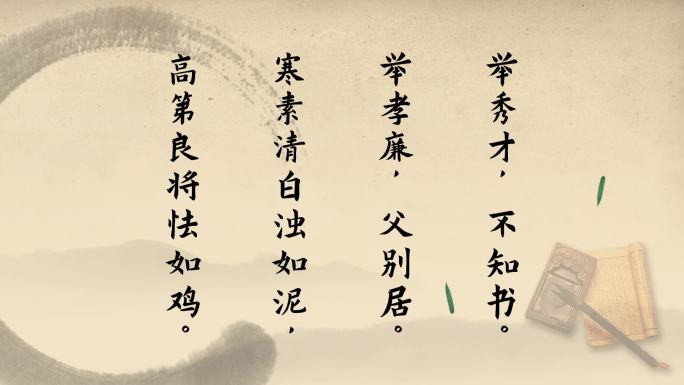 举秀才，不知书。
举孝廉，父别居。
寒素清白浊如泥，
高第良将怯如鸡。